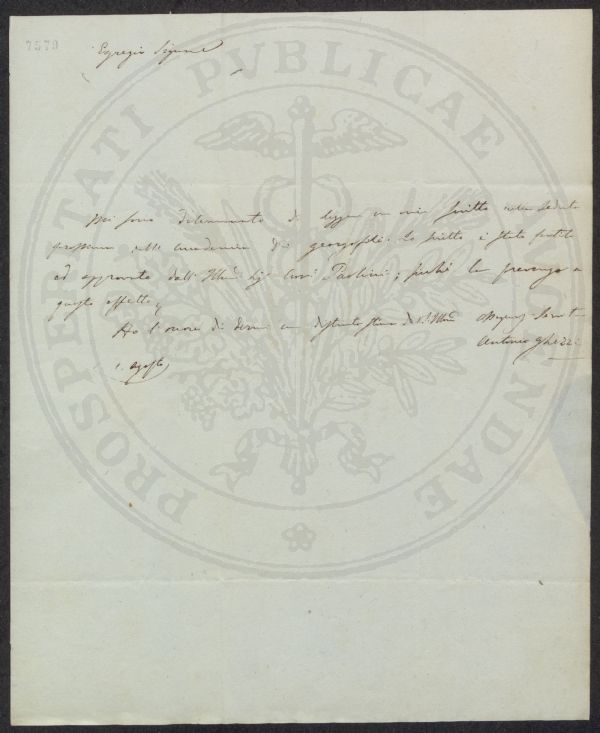 7579
Egregio Signore
PROSPERITATI PUBLICAE AUGENDAE
Mi sono determinato di leggere un mio scritto nella seduta
prossima nell' Accademia dei georgofili. Lo scritto è stato sentito
ed approvato dall' Illmo Sig. Paolini; perché la prevengo a
questo effetto,
Ho l'onore di dirmi con distinta stima di V.S. Illma
Antonio Ghezzi
1. Agosto